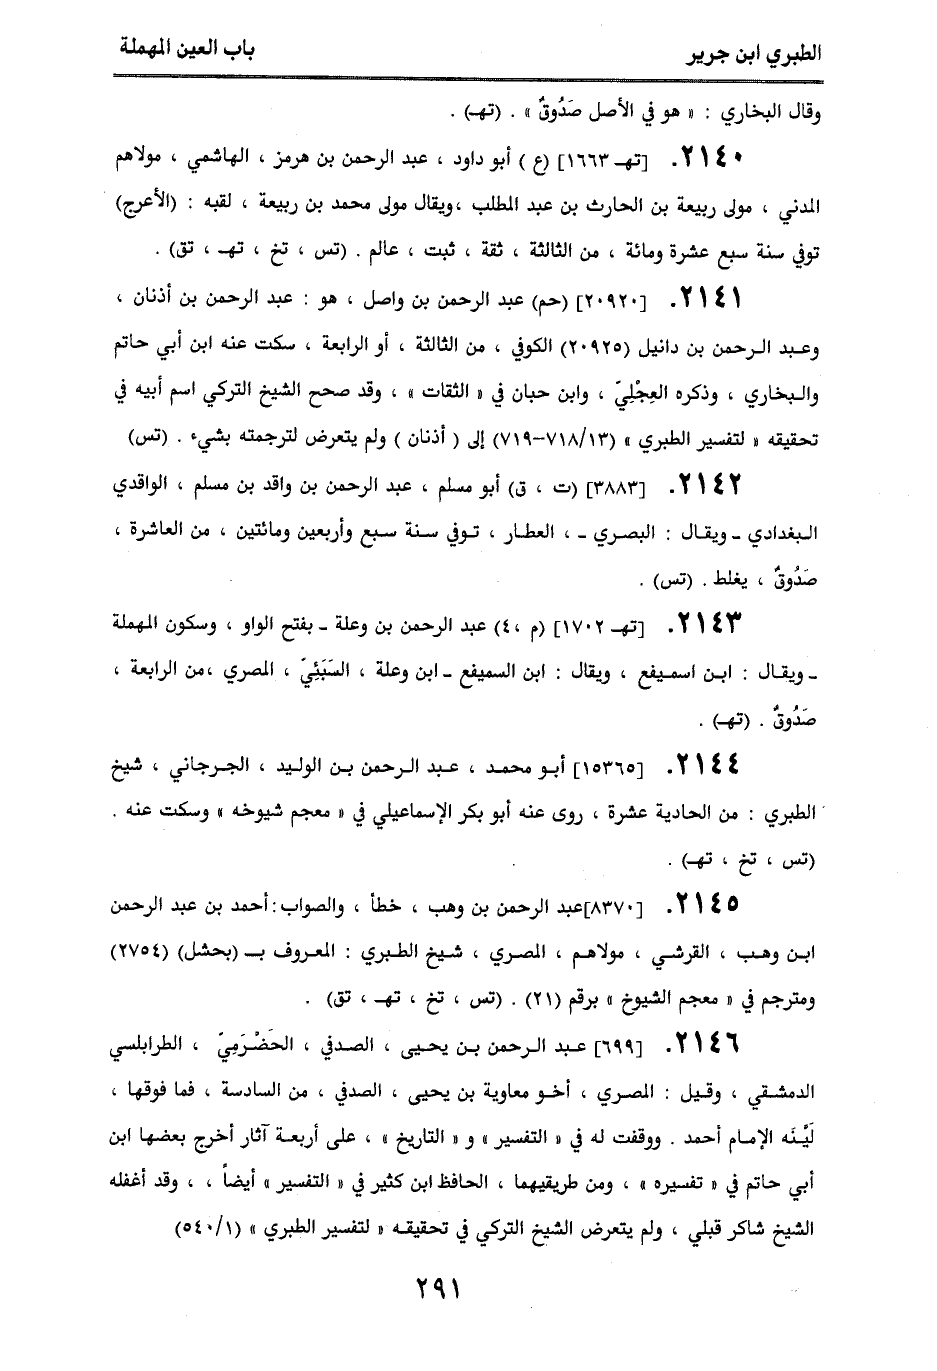 الطبري ابن جرير
باب العين المهملة
وقال البخاري : « هو في الأصل صَدُوقٌ » . (تهـ) .
٢١٤٠. [تهـ ١٦٦٣] (ع ) أبو داود ، عبد الرحمن بن هرمز ، الهاشمي ، مولاهم
المدني ، مولى ربيعة بن الحارث بن عبد المطلب ،ويقال مولى محمد بن ربيعة ، لقبه : (الأعرج)
توفي سنة سبع عشرة ومائة ، من الثالثة ، ثقة ، ثبت ، عالم . (تس ، تخ ، تهـ ، تق) .
٢١٤١. [٢٠٩٢٠] (حم) عبد الرحمن بن واصل ، هو : عبد الرحمن بن أذنان ،
وعبد الرحمن بن دانيل (٢٠٩٢٥) الكوفي ، من الثالثة ، أو الرابعة ، سكت عنه ابن أبي حاتم
والبخاري ، وذكره العِجْلِيّ ، وابن حبان في « الثقات » ، وقد صحح الشيخ التركي اسم أبيه في
تحقيقه « لتفسير الطبري » (٧١٨/١٣–٧١٩) إلى ( أذنان ) ولم يتعرض لترجمته بشيء . (تس)
٢١٤٢. [٣٨٨٣] (ت ، ق) أبو مسلم ، عبد الرحمن بن واقد بن مسلم ، الواقدي
البغدادي ـ ويقال : البصري ـ ، العطار ، توفي سنة سبع وأربعين ومائتين ، من العاشرة ،
صَدُوقٌ ، يغلط . (تس) .
٢١٤٣. [تهـ ١٧٠٢] (م ،٤) عبد الرحمن بن وعلة ـ بفتح الواو ، وسكون المهملة
ـ ويقال : ابن اسميفع ، ويقال : ابن السميفع ـ ابن وعلة ، السَبَئِيّ ، المصري ،من الرابعة ،
صَدُوقٌ . (تهـ) .
٢١٤٤. [١٥٣٦٥] أبو محمد ، عبد الرحمن بن الوليد ، الجرجاني ، شيخ
الطبري : من الحادية عشرة ، روى عنه أبو بكر الإسماعيلي في « معجم شيوخه » وسكت عنه .
(تس ، تخ ، تهـ) .
٢١٤٥. [٨٣٧٠]عبد الرحمن بن وهب ، خطأ ، والصواب:أحمد بن عبد الرحمن
ابن وهب ، القرشي ، مولاهم ، المصري ، شيخ الطبري : المعروف بـ (بحشل) (٢٧٥٤)
ومترجم في « معجم الشيوخ » برقم (٢١) . (تس ، تخ ، تهـ ، تق) .
٢١٤٦. [٦٩٩] عبد الرحمن بن يحيى ، الصدفي ، الحَضْرَمِيّ ، الطرابلسي
الدمشقي ، وقيل : المصري ، أخو معاوية بن يحيى ، الصدفي ، من السادسة ، فما فوقها ،
لَيَّنَه الإمام أحمد . ووقفت له في « التفسير » و « التاريخ » ، على أربعة آثار أخرج بعضها ابن
أبي حاتم في « تفسيره » ، ومن طريقيهما ، الحافظ ابن كثير في « التفسير » أيضاً ، ، وقد أغفله
الشيخ شاكر قبلي ، ولم يتعرض الشيخ التركي في تحقيقه « لتفسير الطبري » (٥٤٠/١)
٢٩١